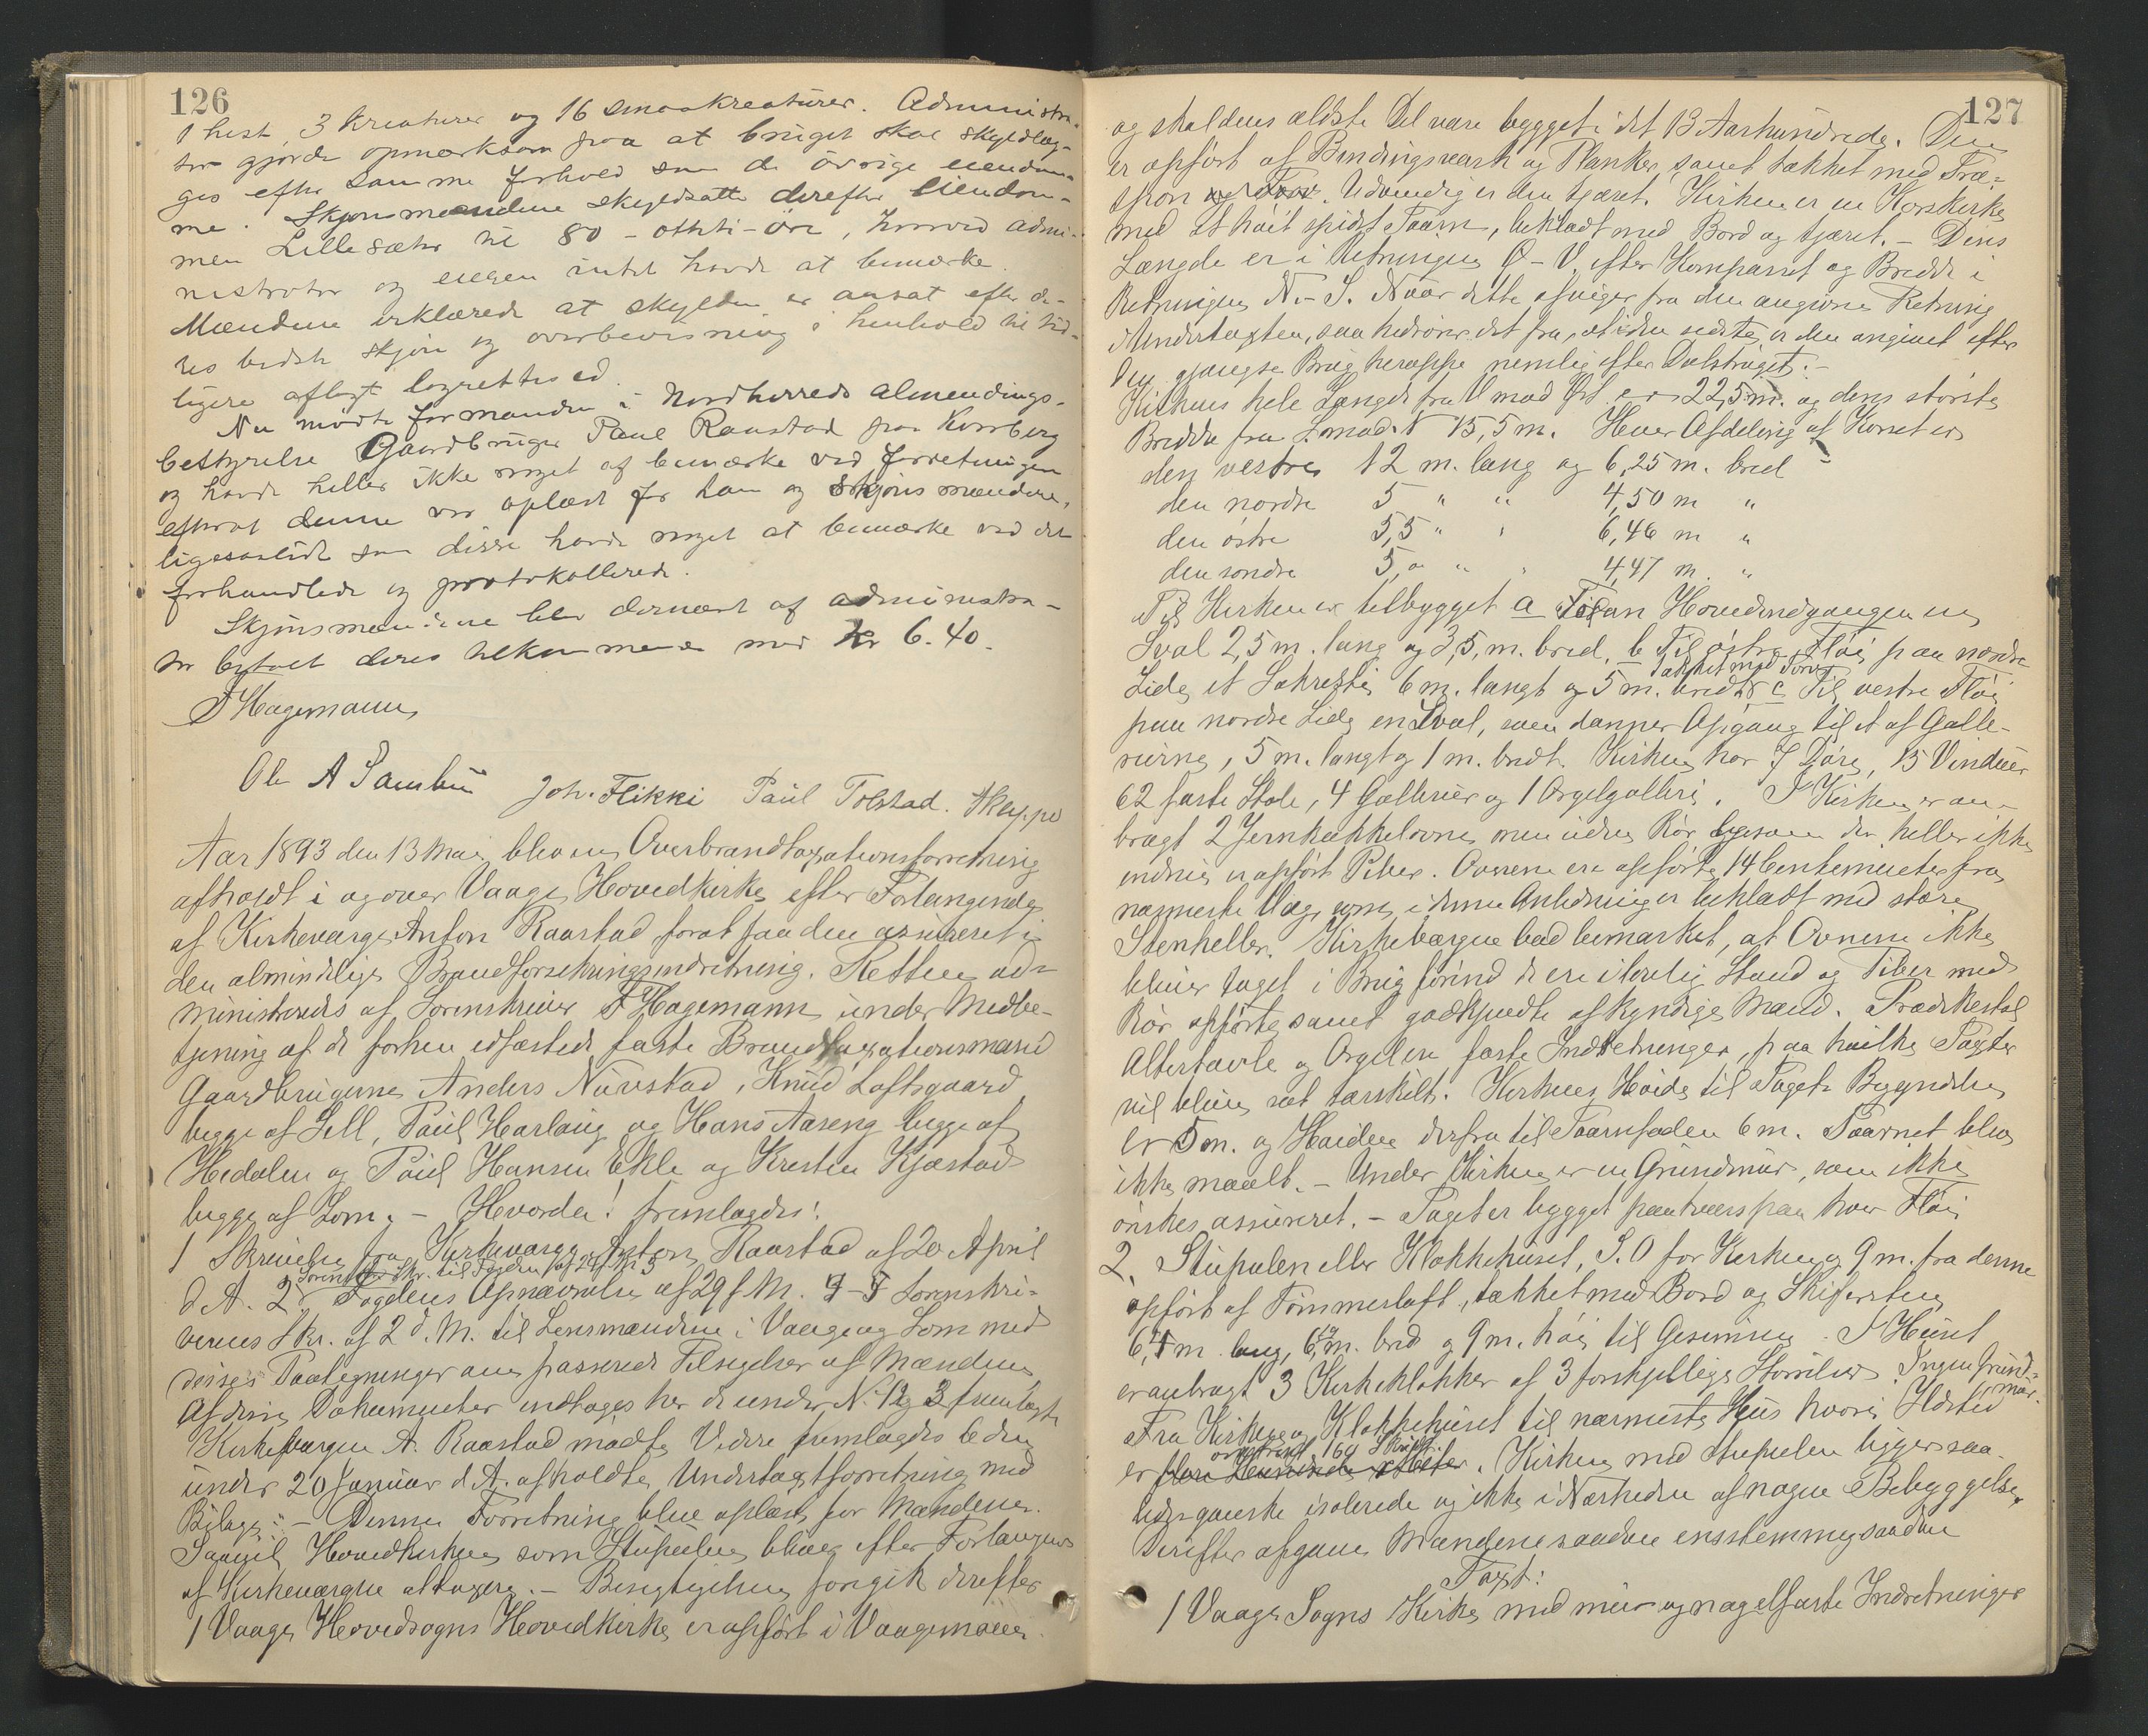 126
1 hest, 3 kreaturer og 16 smaakreaturer. Administra-
tor gjorde opmærksom paa at bruget skal skyldlæg-
ges efter samme forhold som de övrige eiendom-
me. Skjönsmændene skyldsatte derefter eiendom-
men Lillesæter til 80 - otteti - öre, hvorved admi-
nistrator og eieren intet havde at bemærke.
Mændene erklærede at skylden er ansat efter de-
res bedste skjön og overbevisning i henhold til tid-
ligere aflagt lagrettesed.
Nu mödte formanden i Nordherreds almendings-
bestyrelse Gaardbruger Paul Raastad fra
og havde heller ikke noget at bemærke ved forretningen
efterat denne var oplæst for ham og Skjönsmændene,
ligesaalidt som disse havde noget at bemærke ved det
forhandlede og protokollerede.
Skjönsmændene blev dernæst af administra-
tor betalt deres tilkommende med kr 6.40.
F Hagemann
Ole A Sambu Joh. Flikki Paul Tolstad. Skuppe
Aar 1893 den 13 Mai blev en Overbrandtaxationsforretning
afholdt i og over Vaage Hovedkirke efter Forlangende
af Kirkeværge Anton Raastad forat faa den assureret i
den almindelige Brandforsikringsindretning. Retten ad-
ministreredes af Sorenskriver F Hagemann under Medbe-
tjening af de forhen edfæstede faste Brandtaxationsmænd
Gaardbrugerne Anders Núrstad, Knud Loftsgaard
begge af Sell, Paul Harlaug og Hans Aaseng begge af
Hedalen og Paul Hansen Ekle og Kresten Kjæstad
begge af Lom. - Hvorda! fremlagdes:
1 Skrivelse fra Kirkeværge Anton Raastad af 20 April
d A. 2 Fogdens Opnævnelse af 29 f. M. Sorenskri-
verens Skr. af 2 d. M. til Lensmændene i Vaage og Lom med
disses Paategninger om passerede Tilsigelser af Mændene
Af disse Dokumenter indtages her de under No 1 2 og 3 fremlagte
Kirkeværgen A. Raastad mödte Videre fremlagdes b den
under 20 Januar d. A. afholdte Undertaxtforretning med
Bilage: - Denne Forretning blev oplæst for Mændene.
Saavel Hovedkirken som Stupulen bliver efter Forlangende
af Kirkeværgen at taxere. - Besigtigelsen foregik derefter
1 Vaage Hovedsogns Hovedkirke er opfört i Vaagemoen
127
og skal dens ældste Del være bygget i det 13 Aarhundrede. Den
er opfört af Bindingsværk og Planker, samt tækket med Træ-
spon. Udvendig er den tjæret. Kirken er en Korskirke
med et höit spidst Taarn, beklædt med Bord og tjæret. - Dens
Længde er i Retningen Ø - V efter Kompasset og Bredde i
Retningen N - S. Naar dette afviger fra den angivne Retning
i Undertaxten, saa hidrörer det fra, at i den sidste er den angivet efter
den gjængse Brug heroppe nemlig efter Dalströget. -
Kirkens hele Længde fra V mod Øst er 22,5 m. og dens störste
Bredde fra S. mod. N 15,5 m. Hver Afdeling af Korset er
den vestre 12 m. lang og 6,25 m. bred
den nordre 5 " " 4,50 m "
den östre 5,5 " " 6,46 m "
den söndre 5,0 " " 4,47 m. "
Til Kirken er tilbygget a Foran Hovedindgangen en
Sval 2,5 m. lang og 3,5 m. bred, b Til östre Flöi paa nordre
Side et Sakresti 6 m. langt og 5 m. bredt tækket med Torv c Til vestre Flöi
paa nordre Side en Sval, som danner Opgang til et af Galle-
rierne, 5 m. langt og 1 m. bredt. Kirken har 7 Döre, 15 Vinduer
62 faste Stole, 4 Gallerier og 1 Orgelgalleri. I Kirken er an-
bragt 2 Jernkakkelovne, men uden Rör ligesom der heller ikke
endnu er opfört Piber. Ovnene ere opförte 14 Centemeter fra
nærmeste Væg, som i denne Anledning er beklædt med store
Stenheller. Kirkeværgen bad bemærket, at Ovnene ikke
bliver taget i Brug förend de ere i lovlig Stand og Piber med
Rör opförte samt godkjendte af kyndige Mænd. Prædikestol
Altertavle og Orgel ere faste Indretninger, paa hvilke Taxter
vil blive sat særskilt. Kirkens Höide til Tagets Begyndelse
er 5 m. og Höiden derfra til Taarnfoden 6 m. Taarnet blev
ikke maalt. - Under Kirken er en Grundmur, som ikke
önskes assureret. - Taget er bygget paa tværs paa hver Flöi
2, Stupulen eller Klokkehuset, S. O for Kirken og 9 m. fra denne
opfört af Tömmerlaft, tækket med Bord og Skifersten
6,1 m. lang, 6, m. bred og 9 m. höi til Gesimsen. I Huset
er anbragt 3 Kirkeklokker af 3 forskjellige Störrelser. Ingen Grund-
mur.
Fra Kirken og Klokkehuset til nærmeste Hus hvori Ildsted
er omtrent 160 Skridt. Kirken med Stupulen ligger saa-
ledes ganske isolerede og ikke i Nærheden af nogen Bebyggelse.
Derefter afgave Mændene saadan enstemmig saadan
Taxt:
1 Vaage Sogns Kirke med mur og nagelfaste Indretninger